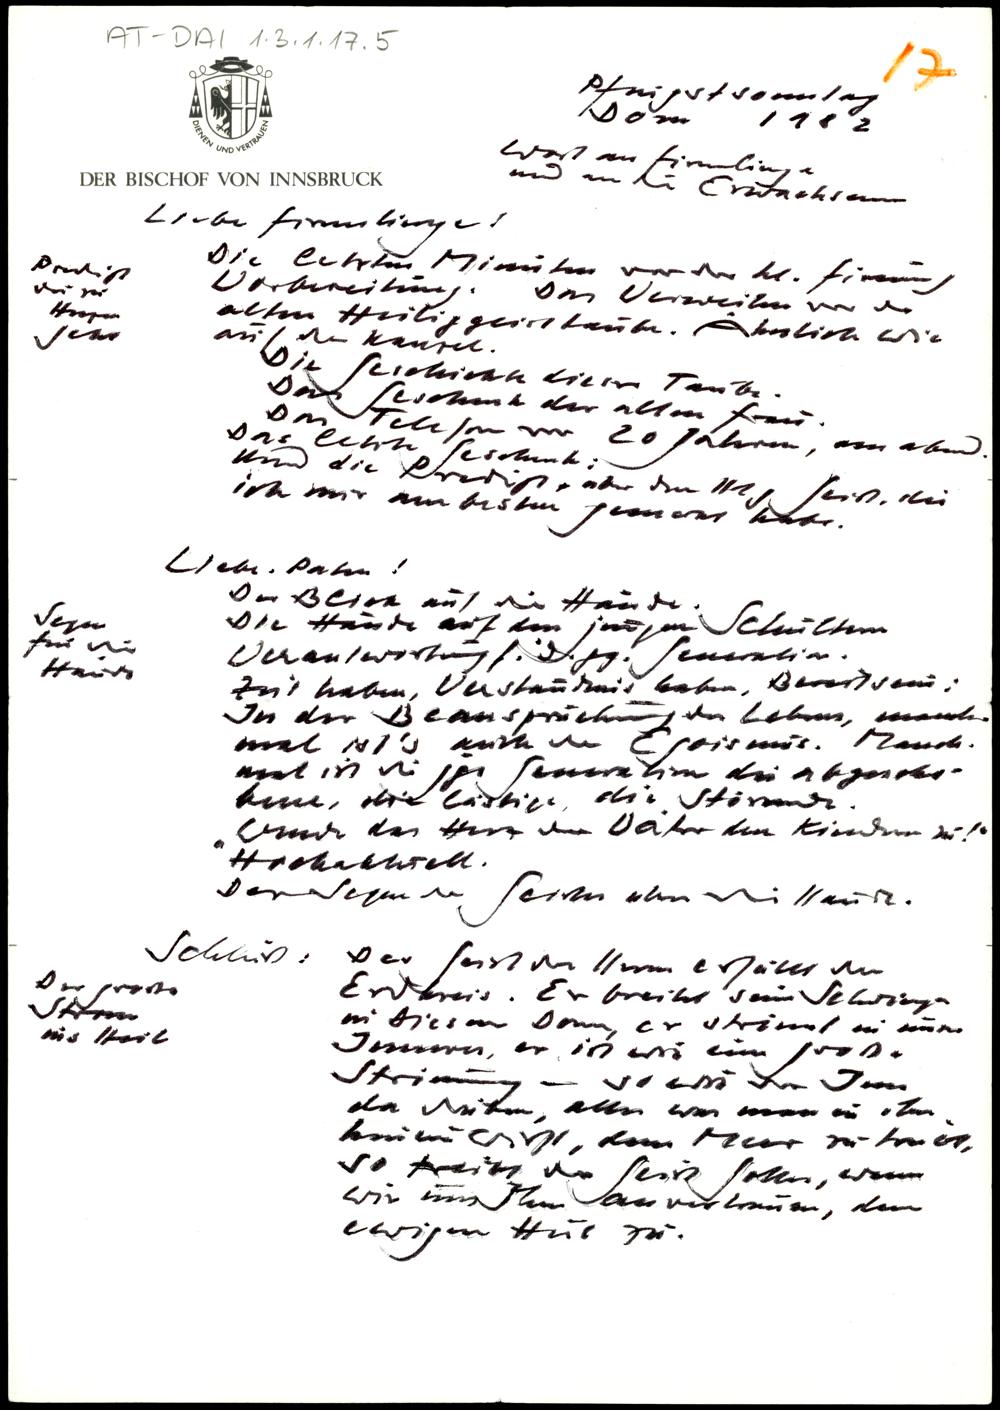 AT-DAI 1.3.1.17.5
17
DIENEN UND VERTRAUEN
DER BISCHOF VON INNSBRUCK
Pfingstsonntag
Dom 1982
Wort an Firmlinge
und an die Erwachsenen
Liebe Firmlinge!
Predigt
die zu
Herzen
geht
Die letzten Minuten vor der hl. Firmung
Vorbereitung. Das Verweilen vor der
alten Heiliggeisttaube. Ähnlich wie
auf der Kanzel.
Die Geschichte dieser Taube.
Das Geschenk der alten Frau.
Das Telefon vor 20 Jahren, am Abend.
Das letzte Geschenk:
Und die Predigt über den Hlg. Geist, die
ich mir am besten gemerkt habe.
Liebe Paten!
Segen
für die
Hände
Der Blick auf die Hände.
Die Hände auf den jungen Schultern
Verantwortung f. d. jg. Generation.
Zeit haben, Verständnis haben, Bereitsein:
In der Beanspruchung des Lebens, manch-
mal ist's auch der Egoismus. Manch-
mal ist die jge Generation die abgescho-
bene, die lästige, die Störende.
"Wende das Herz der Väter den Kindern zu!"
Der Segen des Geistes über die Hände.
Schluß:
Der große
Strom
ins Heil
Der Geist des Herrn erfüllt den
Erdkreis. Er breitet seine Schwingen
in diesem Dom, er strömt in unser
Inneres, er ist wie eine große
Strömung – so wie der Inn
da drüben, alles was man in ihn
hineinwirft, dem Meer zu trägt,
so treibt der Geist Gottes, wenn
wir uns Ihm anvertrauen, dem
ewigen Heil zu.